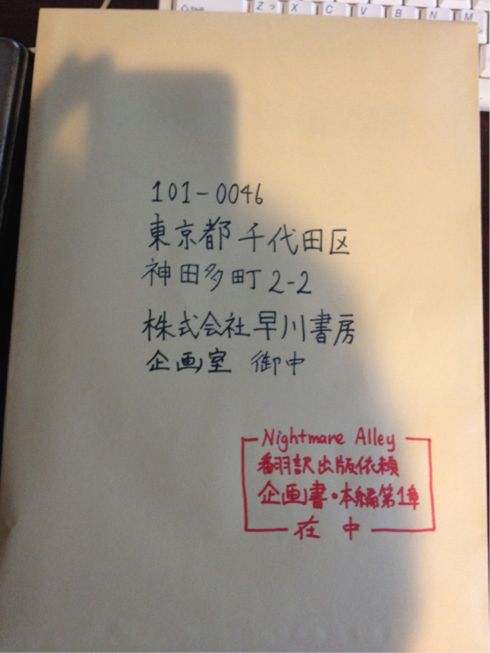 Shift
Z っ
X
C
V
B
N
M
101-0046
東京都千代田区
神田多町2-2
株式会社早川書房
企画室 御中
Nightmare Alley
翻訳出版依頼
企画書・本編第1章
在中